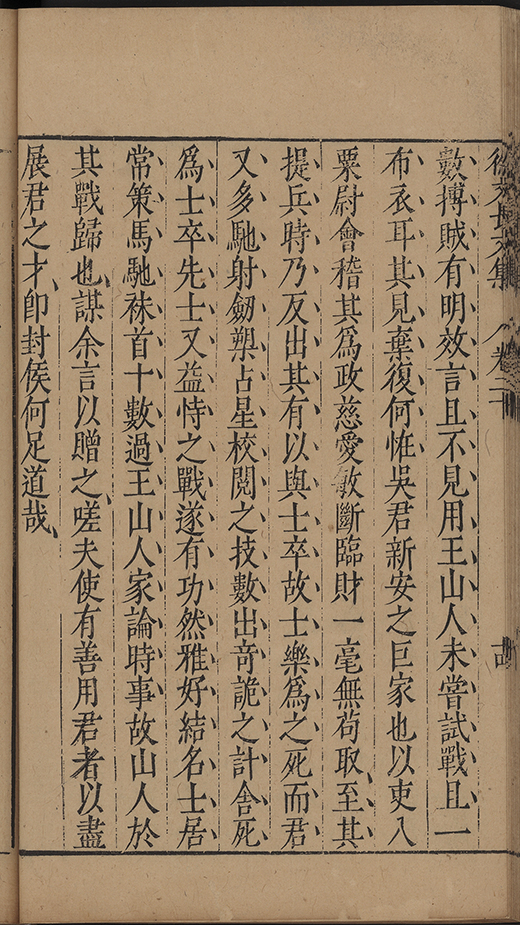 徐文長文集 卷二十
數搏賊有明效言且不見用王山人未嘗試戰且一
布衣耳其見棄復何恠吳君新安之巨家也以吏入
粟尉會稽其為政慈愛敏斷臨財一毫無苟取至其
提兵時乃反出其有以與士卒故士樂為之死而君
又多馳射劒槊占星校閱之技數出奇詭之計舍死
為士卒先士又益恃之戰遂有功然雅好結名士居
常策馬馳袜首十數過王山人家論時事故山人於
其戰歸也謀余言以贈之嗟夫使有善用君者以盡
展君之才卽封侯何足道哉